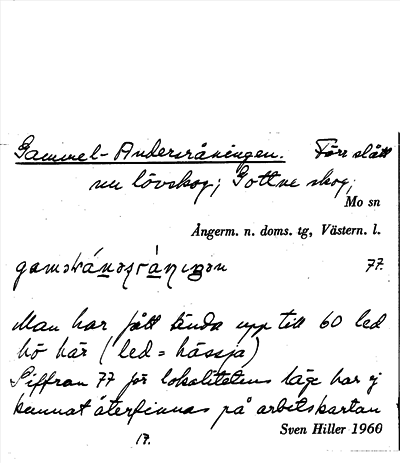 Gammel-Andersråningen. Förr slått
nu lövskog; Gottne skog,
Mo sn
Ångerm. n. doms. tg, Västern. l.
77.
Man har fått ända upp till 60 led
hö här (led = hässja)
Siffran 77 för lokalitetens läge har ej
kunnat återfinnas på arbetskartan
Sven Hiller 1960
17.